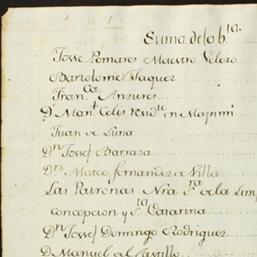 Suma de la bta.
Josse Pomares Maestro Velero
Bartolome Jaquer
Franca Ansures
Dn Mant Celis Residte en Mapimi
Juan de Luna
Dn Josseff Barrara
Dn Mateo fernandes de Villa
Las Patronas Nra Sra de la Limp
Concepcion y Sta Catarina
Dn Josseff Domingo Rodriguez
D Manuel del Castillo